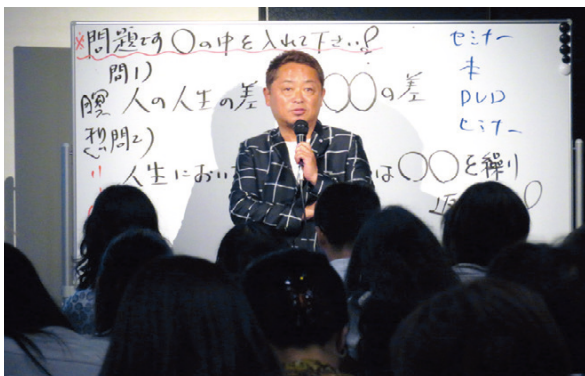 ※問題です〇の中を入れて下さい!
問1)
人の人生の差 〇〇の差
瞑想
問2)
人生におい は〇〇を繰り
セミナー
本
DVD
セミナー